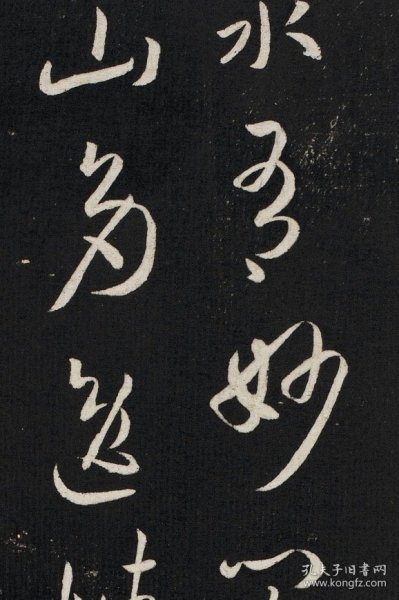 水有妙
山多逸
孔夫子旧书网
www.kongfz.com